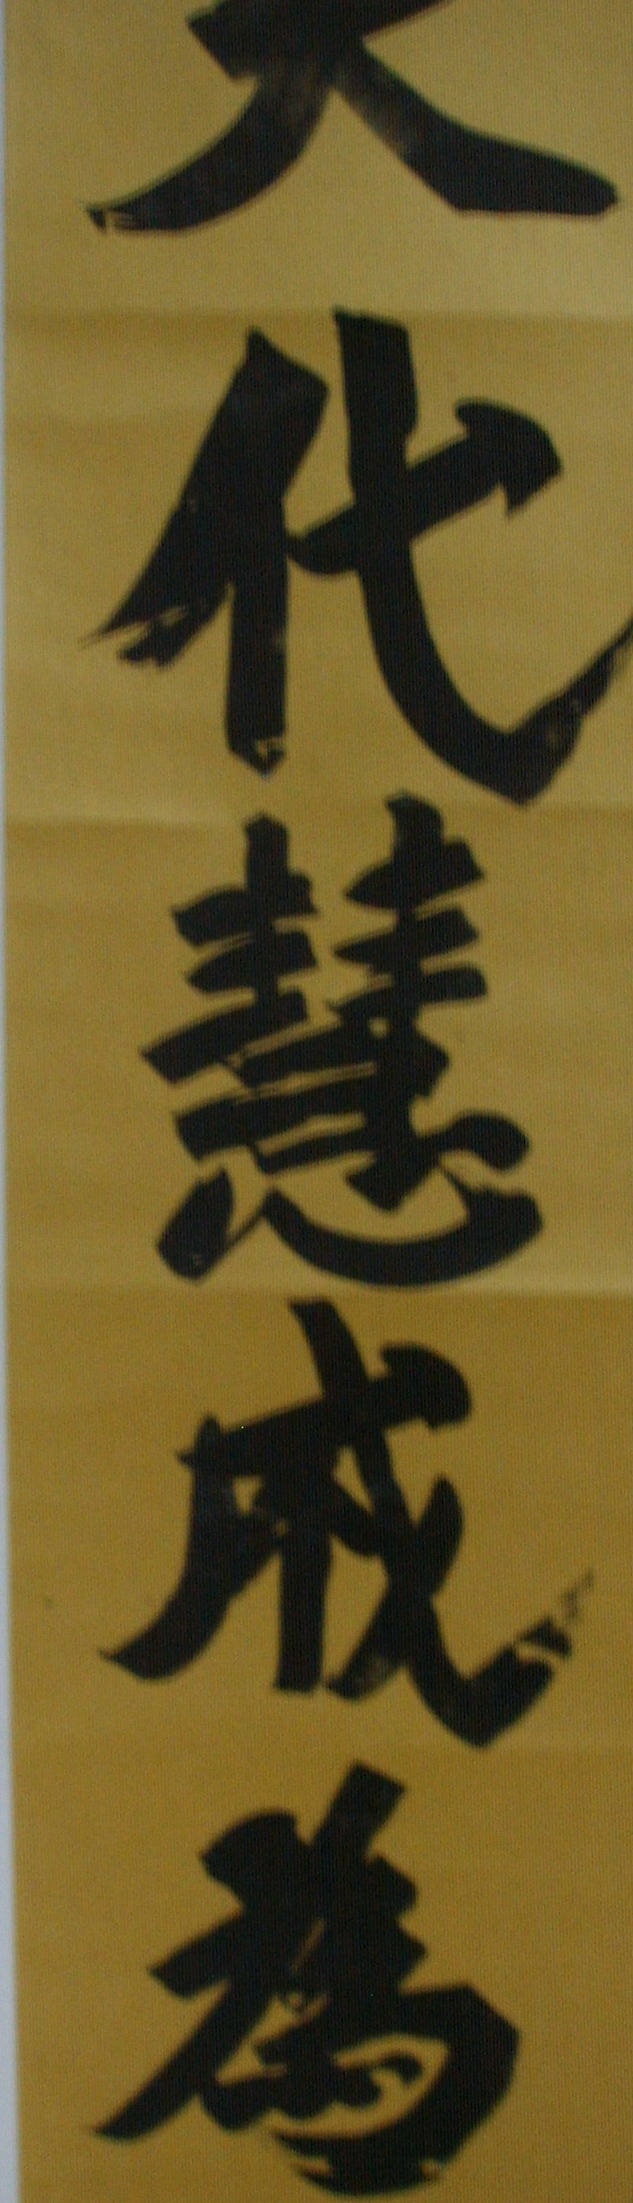 代慧成為